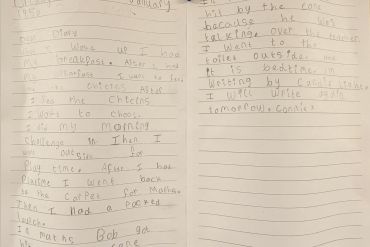 January
1950
Dear Diary
I woke up I had
my breakfast. After I had
my breakfast I went to feed
the chickens After
I fed the chickens
I went to school
I did my morning
challenge Then I
went outside for
play time. After I had
Playtime I went back
to the carpet for Maths.
Then I had a packed
lunch.
In maths Bob got
hit by the cane
because he was
talking over the teacher.
I went to the
toilet outside.
It is bedtime im
writing by candle
I will write again
tomorrow. Connie